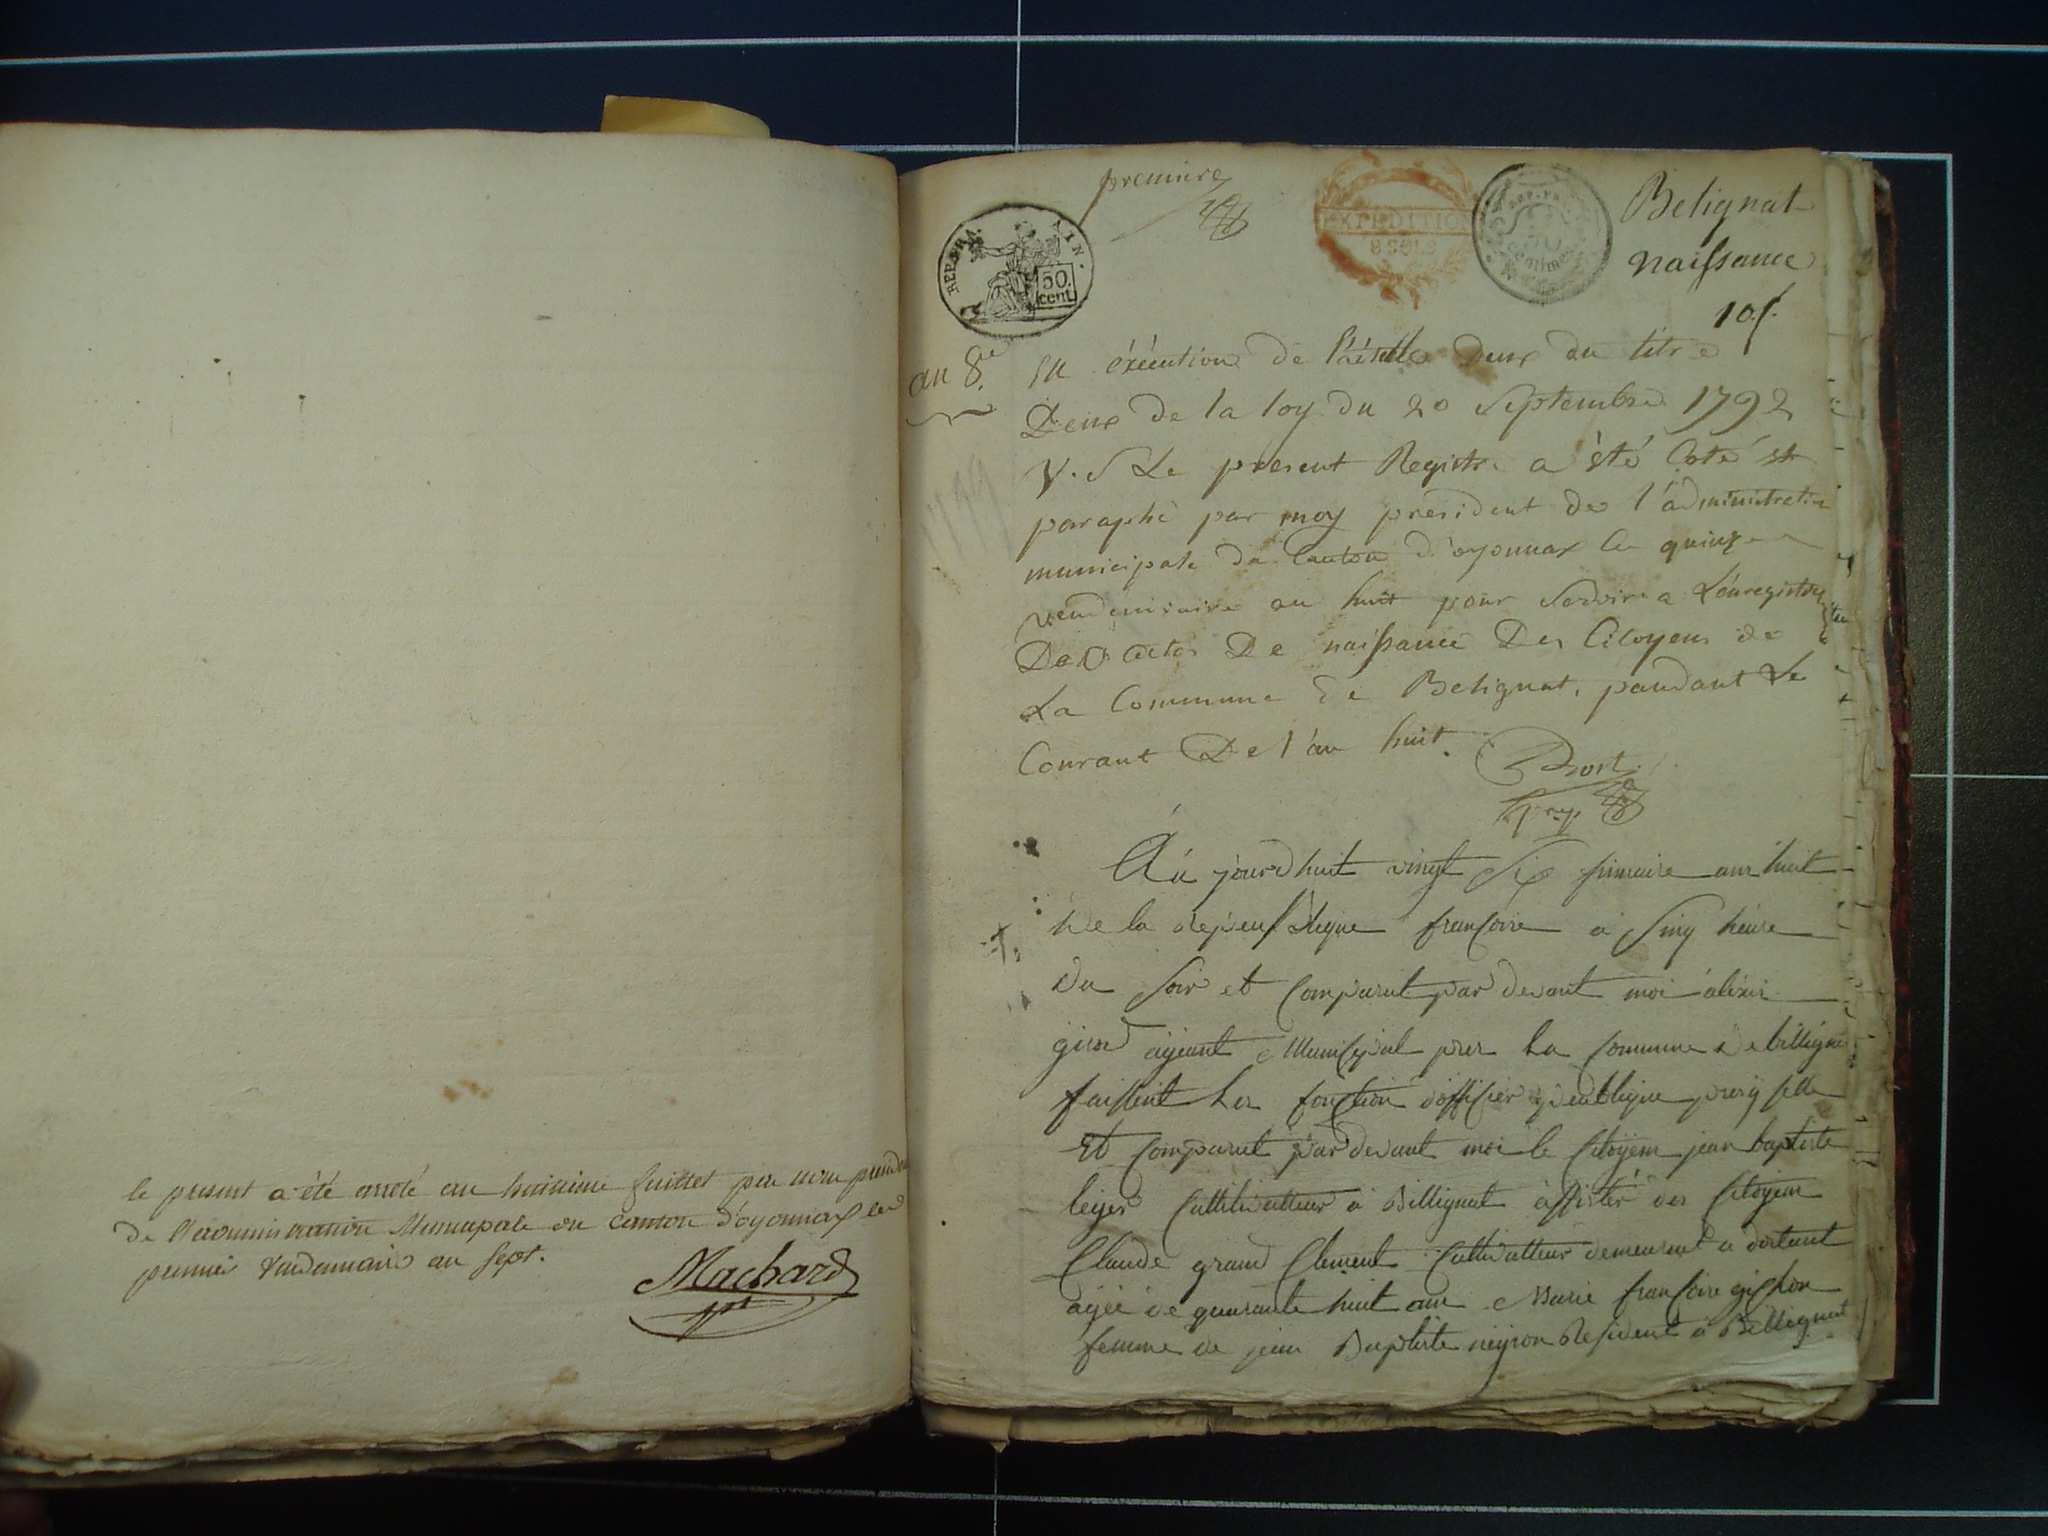 le present a été arreté au huitieme feuillet par nous presiden
de l'administration Municipale du canton d'oyonnax le
premier Vendemiaire an Sept.
Machard
premiere
REP. FRA.
50
cent
EXPEDITION
8 SOLS
Belignat
naissance
10 f.
an 8e
En éxécution de l'article deux du titre
Deux de la loy du 20 Septembre 1792
V. S Le present Registre a été Coté et
paraphé par moy president de l'administration
municipale du Canton d'oyonnax le quinze
vendemiaire an huit pour Servir a L'enregistre
Des actes De naissance Des Citoyens de
La Commune de Belignat, pandant Le
Courant De l'an huit.
Au jourdhuit vingt Six frimaire ans huit
de la françoise a Sinq heure
du Soir et Comparut par devant moi aléxis
ageant Municipal pres La Commune de billignat
faissent Les fonction d'officier
Et Comparut par devant moi le Citoyem jean baptiste
leger a Billignat assister des Citoyem
Claude grand Clement demeurant a dortant
agée de quarante huit ans Marie françoise
femme de jean Baptiste neyron Resident a Billignat